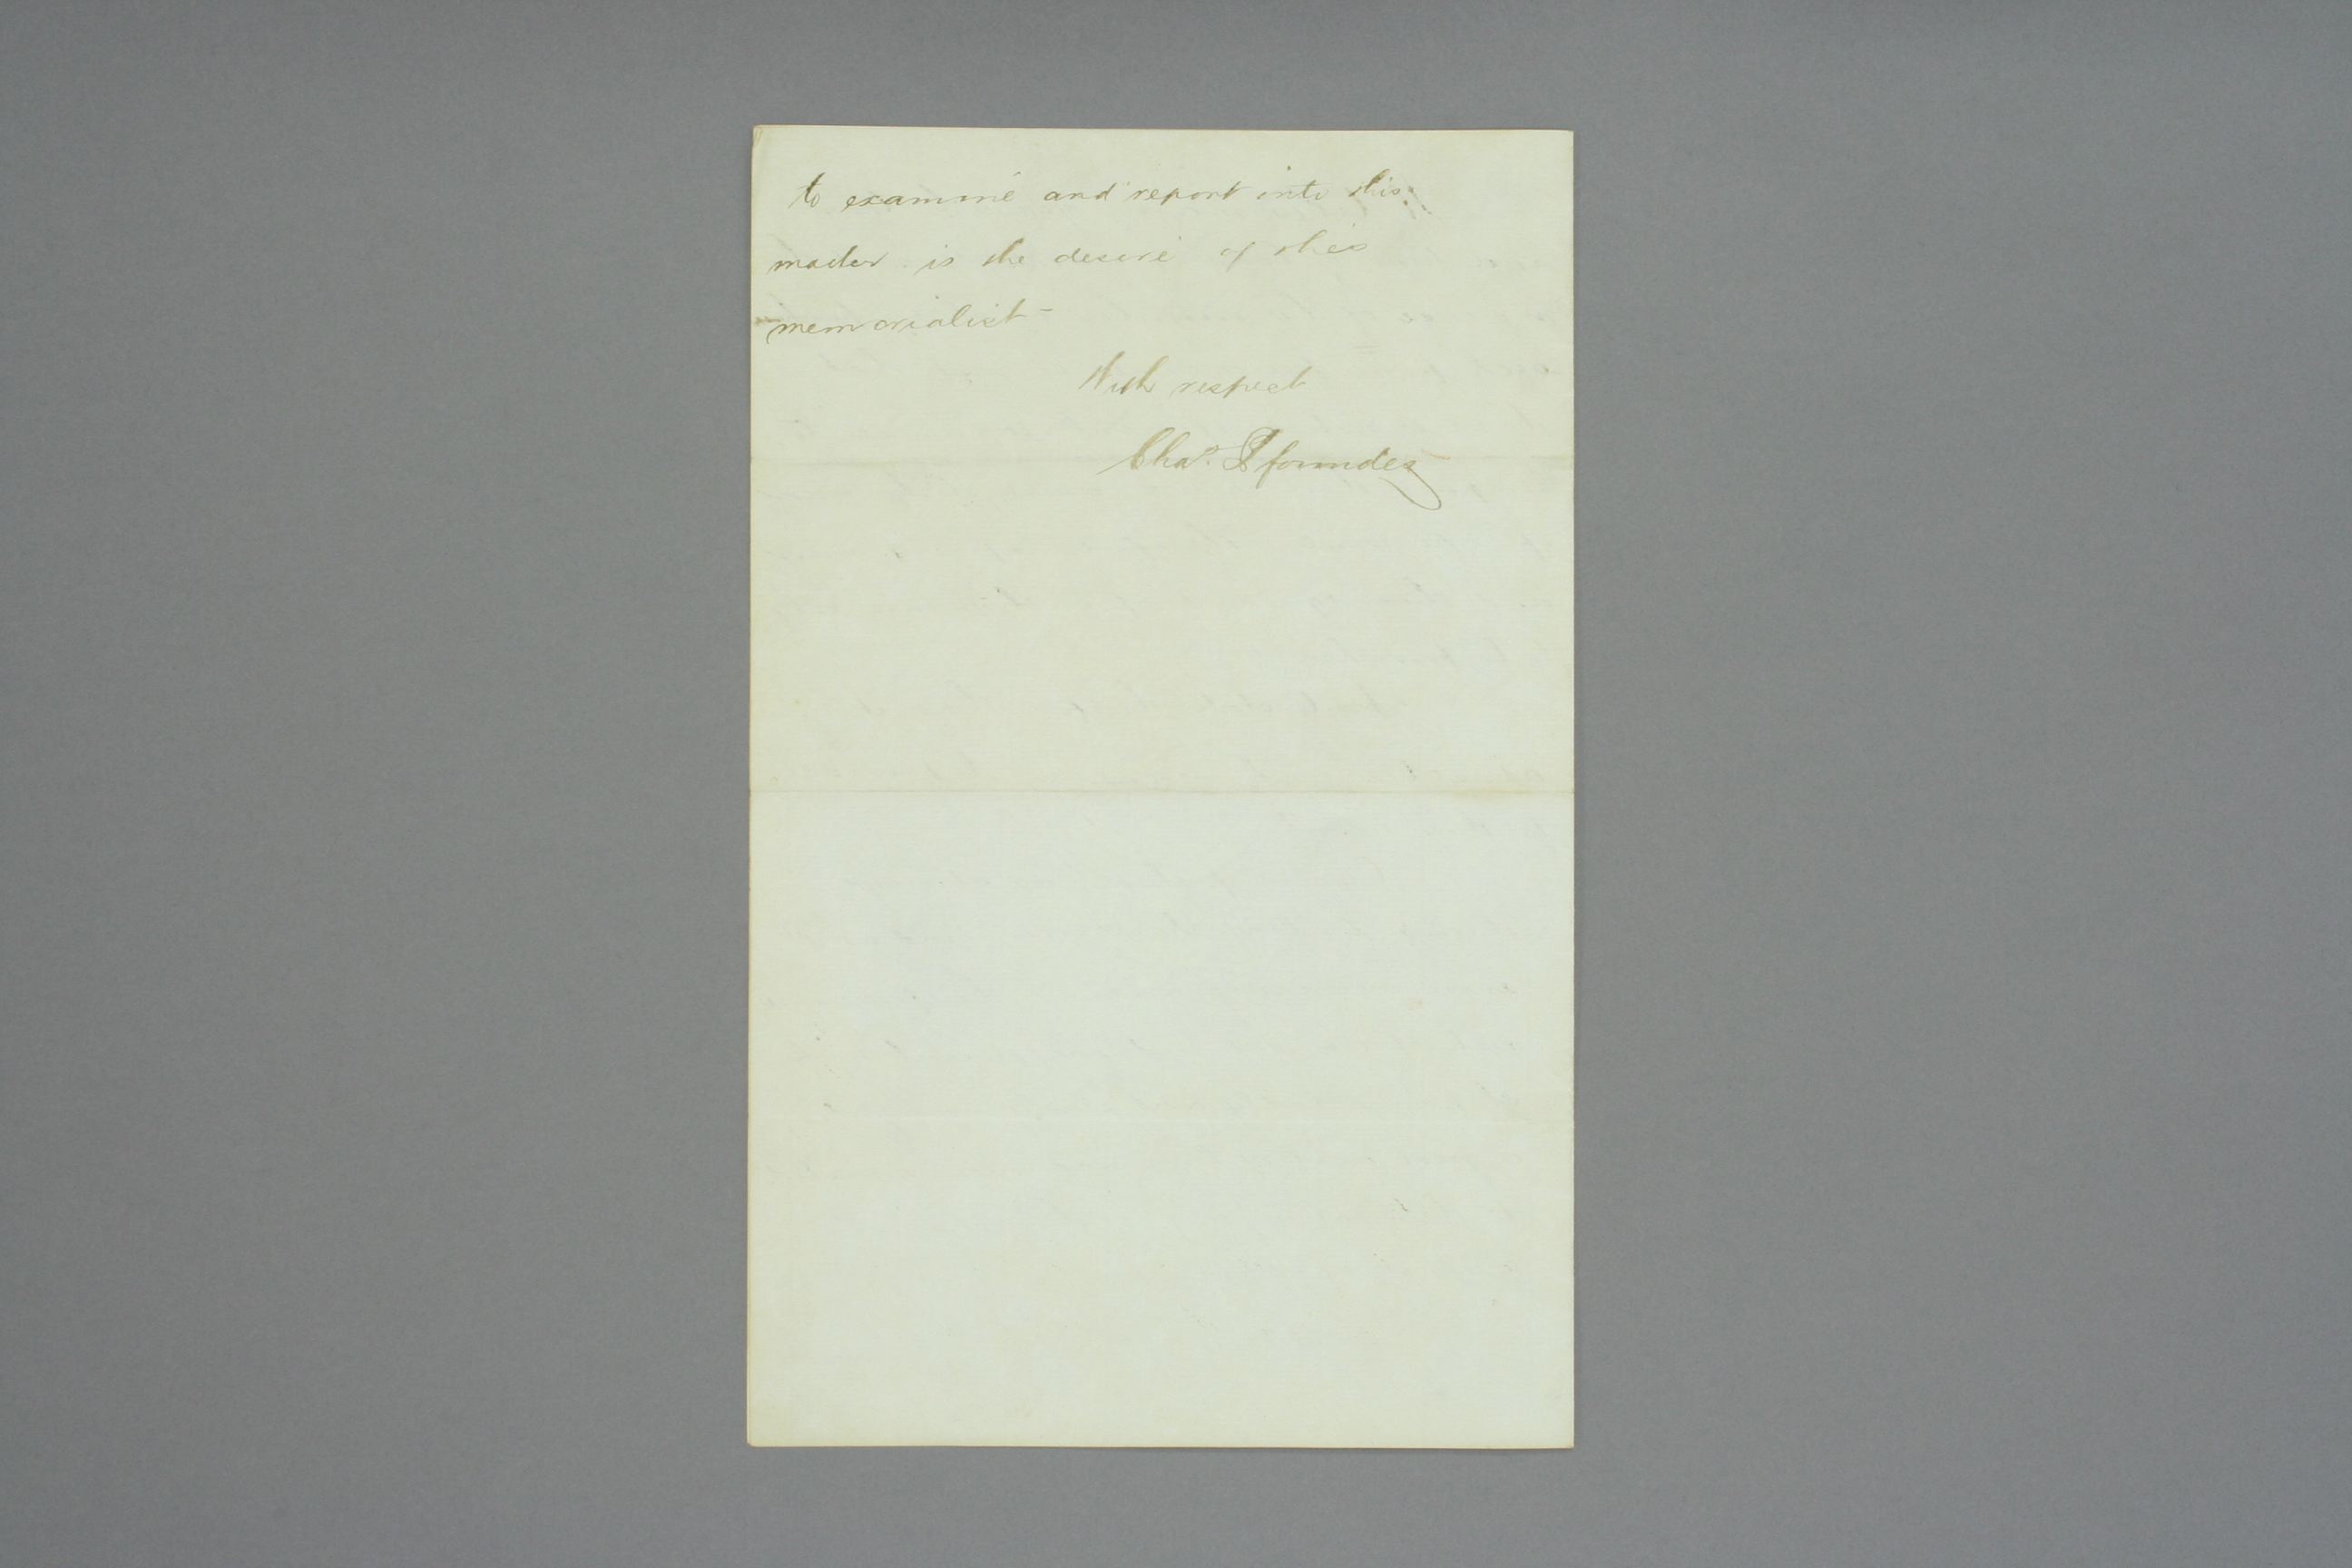 to examine and report into this
matter is the desire of this
memorialist -
With respect
Chas. Pfoundes